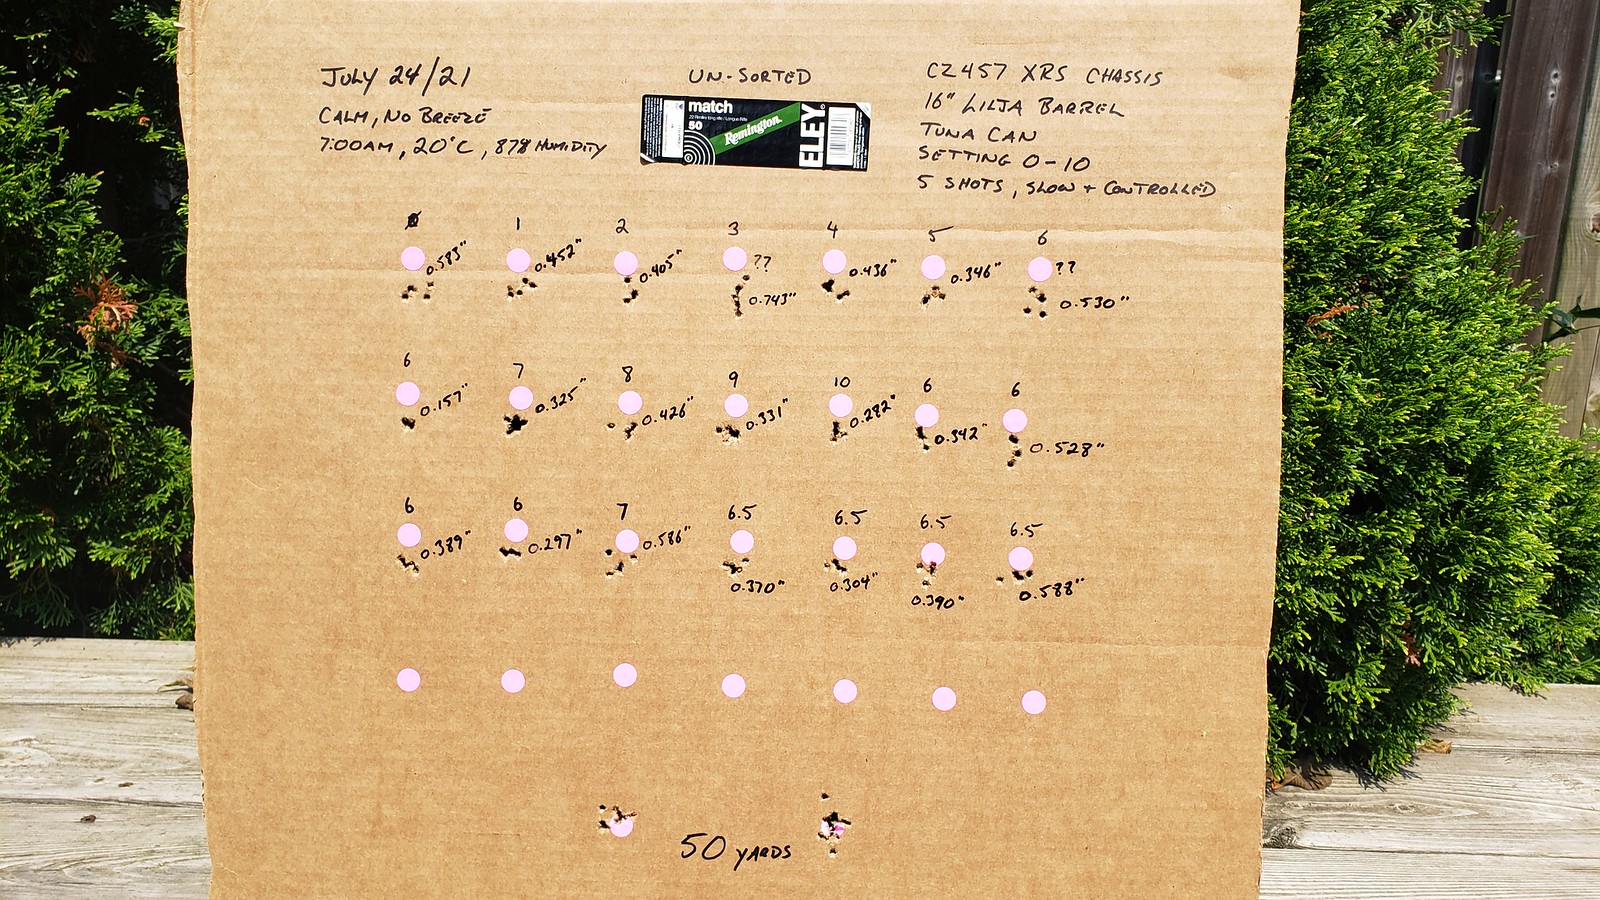 JULY 24/21
CALM, NO BREEZE
7:00AM, 20°C, 87% HUMIDITY
UN-SORTED
match
50
Remington
ELEY
CZ457 XRS CHASSIS
16" LILJA BARREL
TUNA CAN
SETTING 0-10
5 SHOTS, SLOW + CONTROLLED
0 1 2 3 4 5 6
0.583" 0.452" 0.405" ?? 0.436" 0.346" ??
0.743" 0.530"
6 7 8 9 10 6 6
0.157" 0.325" 0.426" 0.331" 0.282" 0.342" 0.528"
6 6 7 6.5 6.5 6.5 6.5
0.389" 0.297" 0.586" 0.370" 0.304" 0.390" 0.588"
50 YARDS